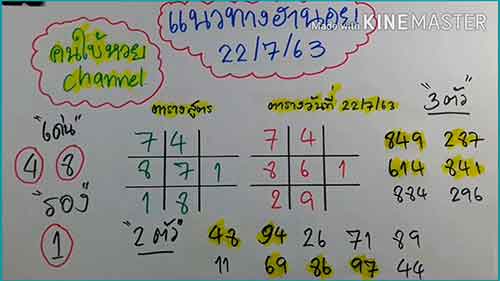 แนวทางฮานอย
Made with KINEMASTER
22/7/63
คนใบ้หวย
channel
ตารางสูตร
ตารางวันที่ 22/7/63
"3 ตัว"
"เด่น"
4 8
"รอง"
1
7 4
8 7 1
1 8
7 4
8 6 1
2 9
849 287
614 841
884 296
"2 ตัว" 48 94 26 71 89
11 69 86 97 44